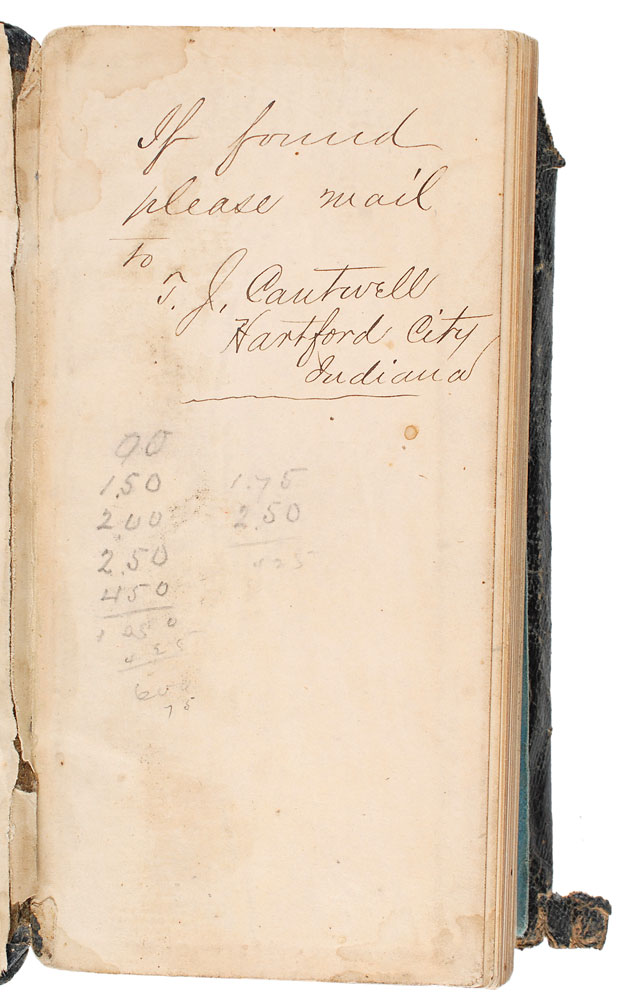 If found
please mail
to
T. J. Cantwell
Hartford City
Indiana
1.50
2.00
2.50
450
1.75
2.50
425